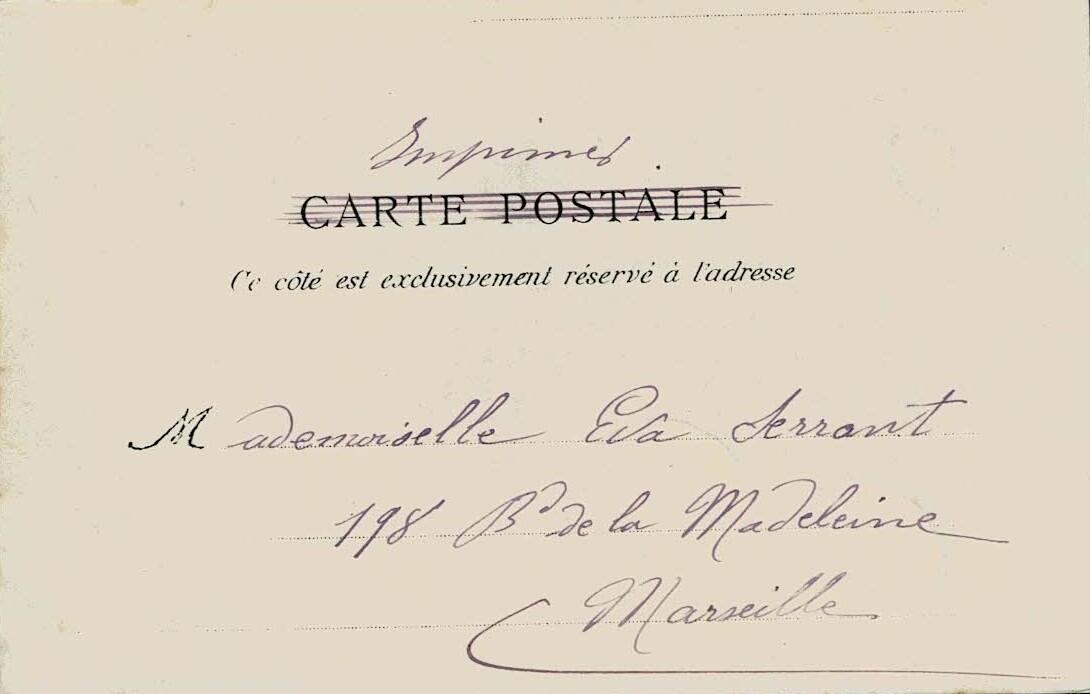 Imprimés
CARTE POSTALE
Ce côté est exclusivement réservé à l'adresse
Mademoiselle Eva Serrant
198 Bd de la Madeleine
Marseille